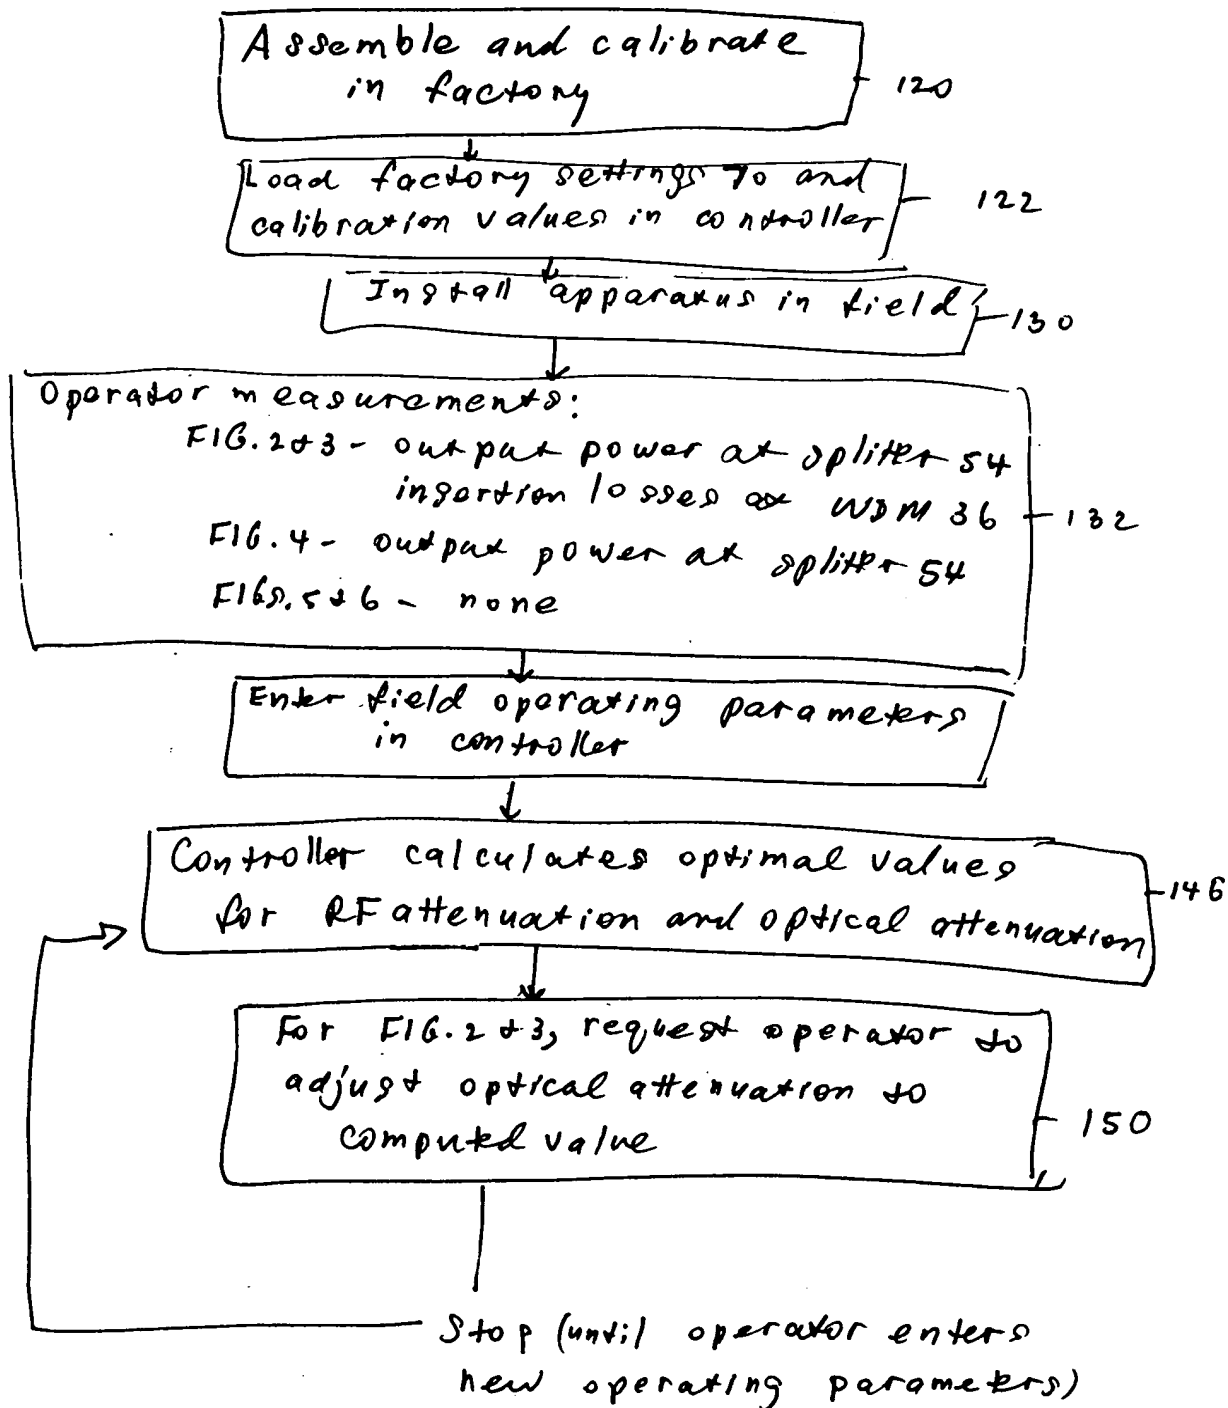 Assemble and calibrate
in factory
120
Load factory settings To and
calibration values in controller
122
Install apparatus in field
130
Operator measurements:
FIG. 2 & 3 - output power at splitter 54
insertion losses at WDM 36
132
FIG. 4 - output power at splitter 54
FIGs. 5 & 6 - none
Enter field operating parameters
in controller
Controller calculates optimal values
for RF attenuation and optical attenuation
146
For FIG. 2 & 3, request operator to
adjust optical attenuation to
computed value
150
Stop (until operator enters
new operating parameters)